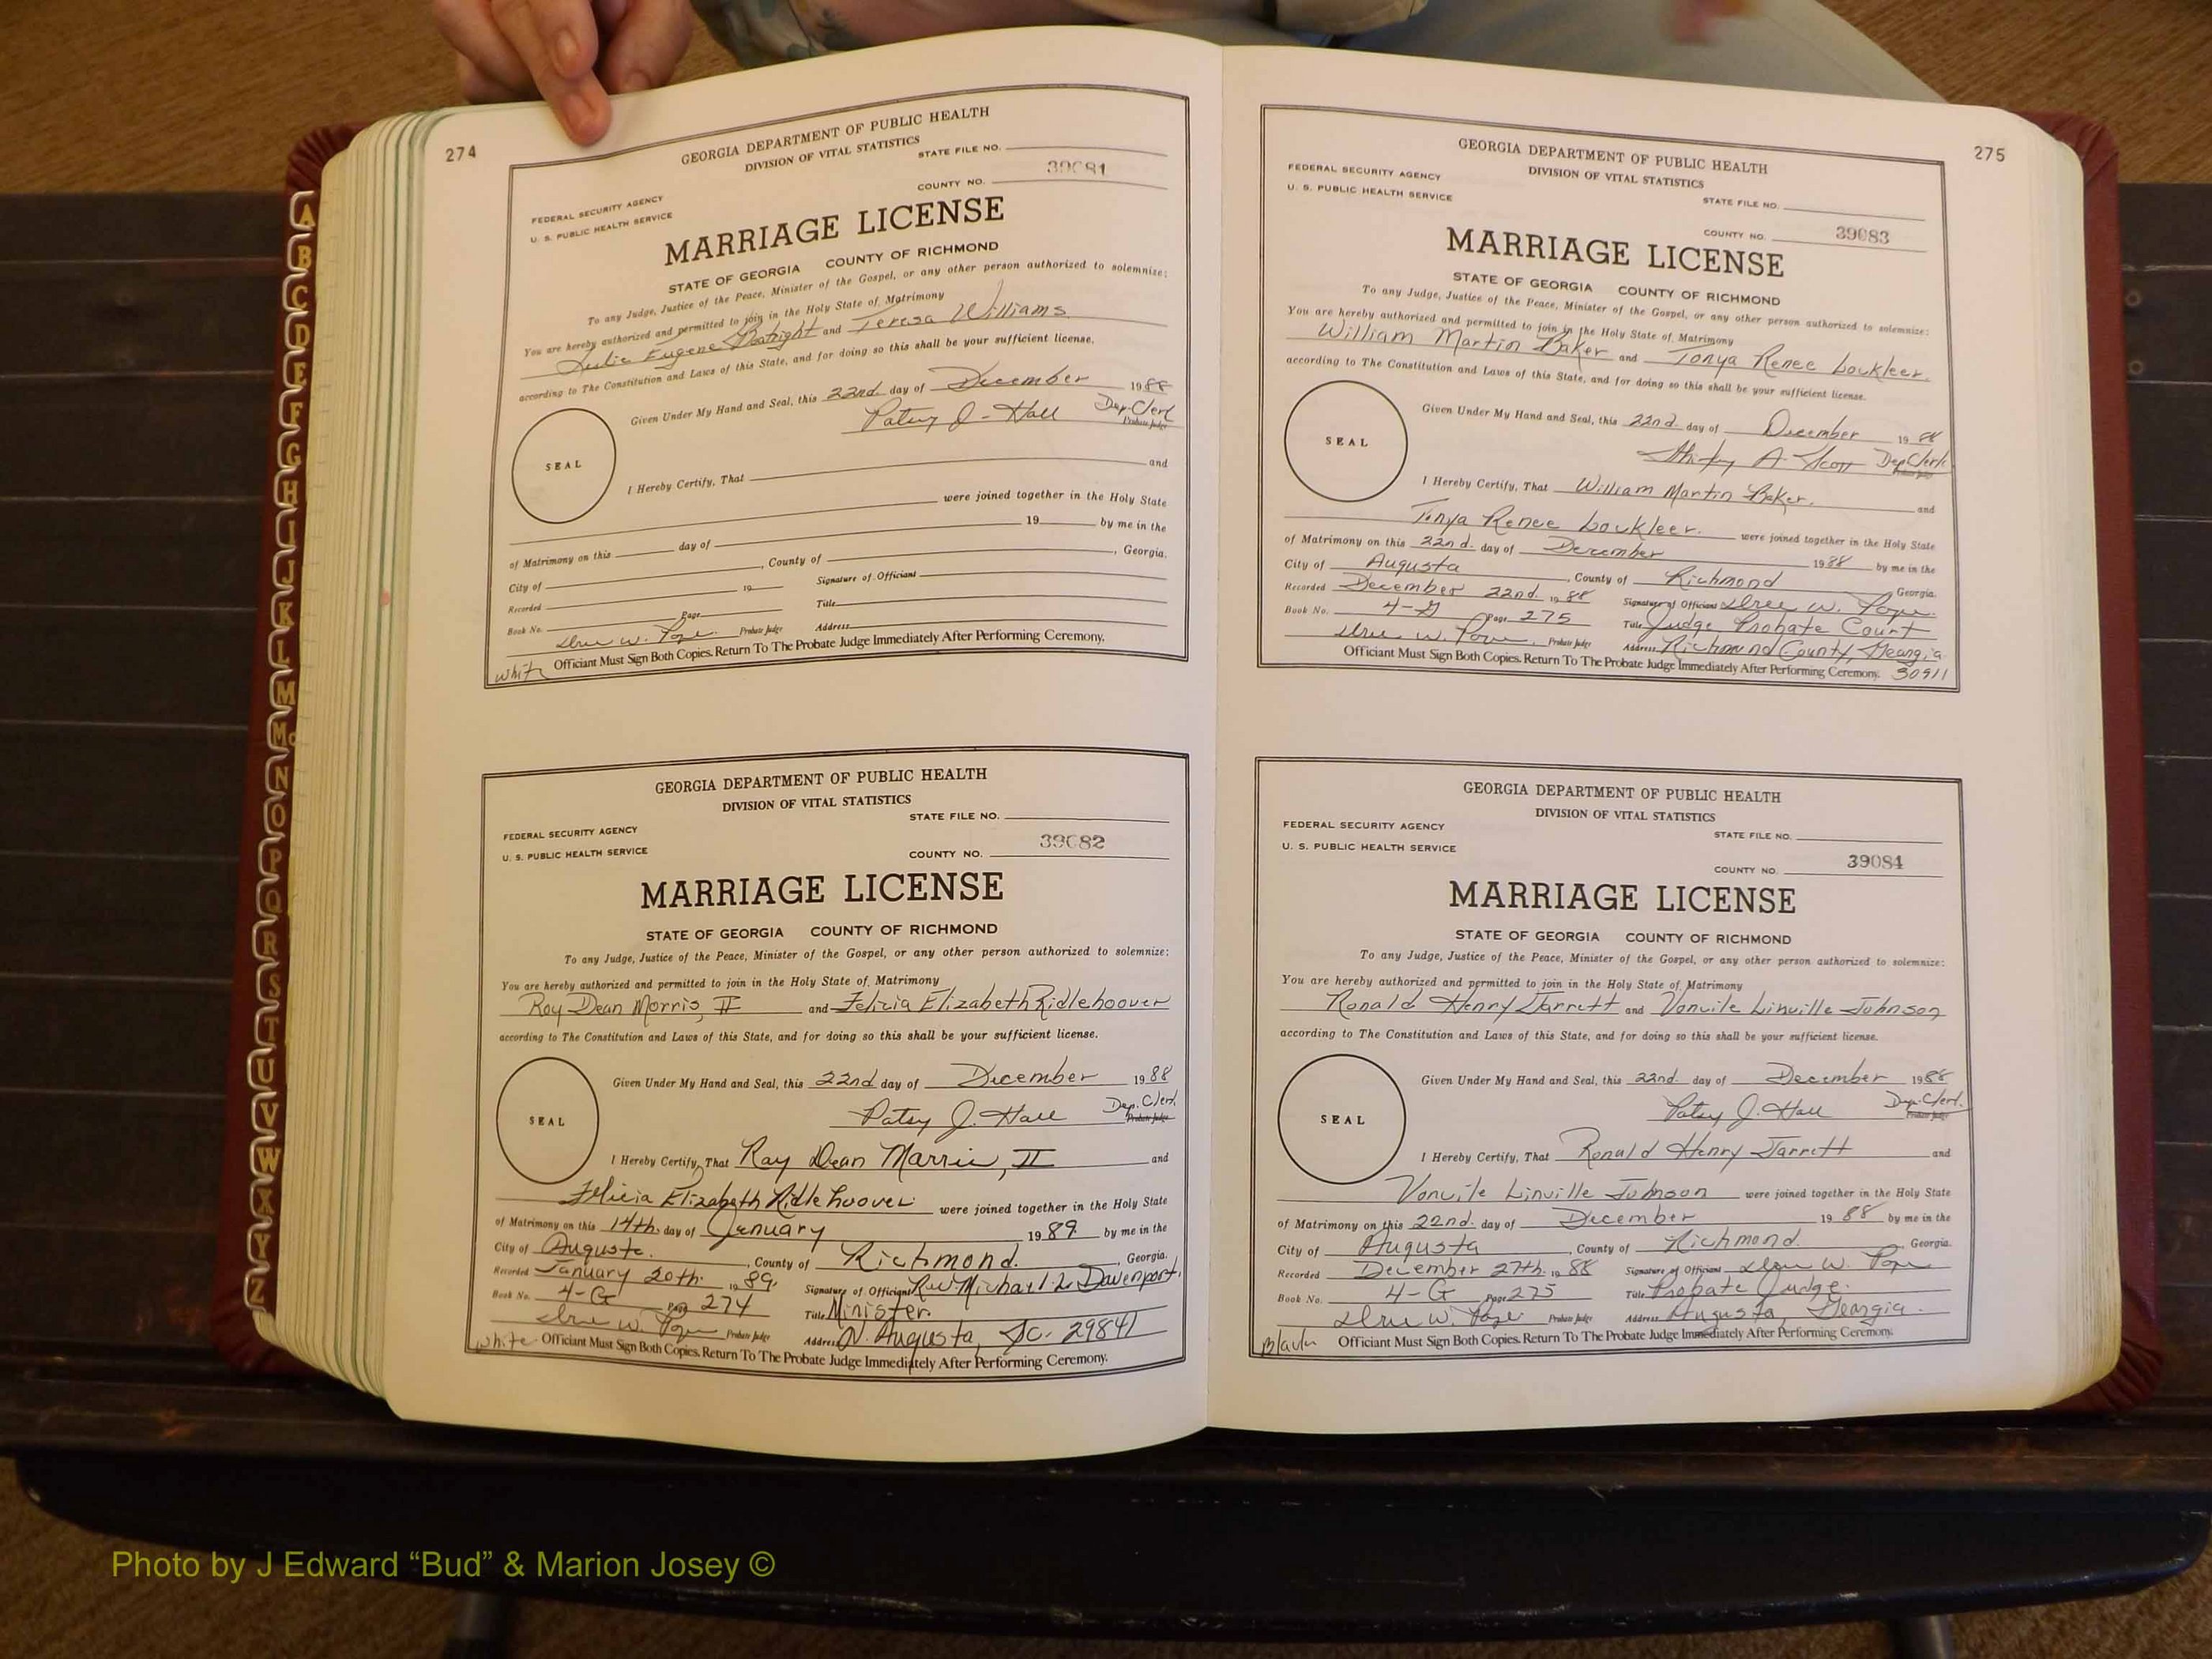 274
GEORGIA DEPARTMENT OF PUBLIC HEALTH
DIVISION OF VITAL STATISTICS
STATE FILE NO.
39081
COUNTY NO.
FEDERAL SECURITY AGENCY
U. S. PUBLIC HEALTH SERVICE
MARRIAGE LICENSE
STATE OF GEORGIA COUNTY OF RICHMOND
To any Judge, Justice of the Peace, Minister of the Gospel, or any other person authorized to solemnize:
You are hereby authorized and permitted to join in the Holy State of Matrimony
Eugene and Teresa Williams
according to The Constitution and Laws of this State, and for doing so this shall be your sufficient license.
Given Under My Hand and Seal, this 22nd. day of December 1988
Patsy J. Hall Dep. Clerk
Probate Judge
SEAL
I Hereby Certify, That and
were joined together in the Holy State
of Matrimony on this day of 19 by me in the
City of , County of , Georgia.
Recorded 19 Signature of Officiant
Book No. Page Title
W. Pope Probate Judge Address
white Officiant Must Sign Both Copies. Return To The Probate Judge Immediately After Performing Ceremony.
GEORGIA DEPARTMENT OF PUBLIC HEALTH
DIVISION OF VITAL STATISTICS
STATE FILE NO.
FEDERAL SECURITY AGENCY
39082
U. S. PUBLIC HEALTH SERVICE COUNTY NO.
MARRIAGE LICENSE
STATE OF GEORGIA COUNTY OF RICHMOND
To any Judge, Justice of the Peace, Minister of the Gospel, or any other person authorized to solemnize:
You are hereby authorized and permitted to join in the Holy State of Matrimony
Roy Dean Morris, II and Felicia Elizabeth Ridlehoover
according to The Constitution and Laws of this State, and for doing so this shall be your sufficient license.
Given Under My Hand and Seal, this 22nd day of December 1988
Patsy J. Hall Dep. Clerk
Probate Judge
SEAL
I Hereby Certify, That Roy Dean Morris, II and
Felicia Elizabeth Ridlehoover were joined together in the Holy State
of Matrimony on this 14th. day of January 1989 by me in the
City of Augusta. , County of Richmond. , Georgia.
Recorded January 20th. 1989. Signature of Officiant Rev Michael L. Davenport.
Book No. 4-G Page 274 Title Minister.
W. Pope Probate Judge Address N. Augusta, SC. 29841
white Officiant Must Sign Both Copies. Return To The Probate Judge Immediately After Performing Ceremony.
275
GEORGIA DEPARTMENT OF PUBLIC HEALTH
DIVISION OF VITAL STATISTICS
FEDERAL SECURITY AGENCY
U. S. PUBLIC HEALTH SERVICE
STATE FILE NO.
COUNTY NO. 39083
MARRIAGE LICENSE
STATE OF GEORGIA COUNTY OF RICHMOND
To any Judge, Justice of the Peace, Minister of the Gospel, or any other person authorized to solemnize:
You are hereby authorized and permitted to join in the Holy State of Matrimony
William Martin Baker and Tonya Renee Loukleer.
according to The Constitution and Laws of this State, and for doing so this shall be your sufficient license.
Given Under My Hand and Seal, this 22nd. day of December 1988
Shirley A. Scott Dep Clerk
Probate Judge
SEAL
I Hereby Certify, That William Martin Baker. and
Tonya Renee Loukleer. were joined together in the Holy State
of Matrimony on this 22nd. day of December 1988 by me in the
City of Augusta , County of Richmond Georgia.
Recorded December 22nd. 1988 Signature of Officiant W. Pope.
Book No. 4-G Page 275 Title Judge Probate Court
W. Pope. Probate Judge Address Richmond County, Georgia
Officiant Must Sign Both Copies. Return To The Probate Judge Immediately After Performing Ceremony. 30911
GEORGIA DEPARTMENT OF PUBLIC HEALTH
DIVISION OF VITAL STATISTICS
FEDERAL SECURITY AGENCY
STATE FILE NO.
U. S. PUBLIC HEALTH SERVICE
COUNTY NO. 39084
MARRIAGE LICENSE
STATE OF GEORGIA COUNTY OF RICHMOND
To any Judge, Justice of the Peace, Minister of the Gospel, or any other person authorized to solemnize:
You are hereby authorized and permitted to join in the Holy State of Matrimony
Ronald Henry Jarrett and Vonvile Linville Johnson
according to The Constitution and Laws of this State, and for doing so this shall be your sufficient license.
Given Under My Hand and Seal, this 22nd. day of December 1988
Patsy J. Hall Dep. Clerk.
Probate Judge
SEAL
I Hereby Certify, That Ronald Henry Jarrett and
Vonvile Linville Johnson were joined together in the Holy State
of Matrimony on this 22nd. day of December 1988 by me in the
City of Augusta , County of Richmond. Georgia.
Recorded December 27th. 1988 Signature of Officiant W. Pope
Book No. 4-G Page 275 Title Probate Judge.
W. Pope Probate Judge Address Augusta, Georgia.
Black Officiant Must Sign Both Copies. Return To The Probate Judge Immediately After Performing Ceremony.
A
B
C
D
E
F
G
H
I
J
K
L
M
Mc
N
O
P
Q
R
S
T
U
V
W
X
Y
Z
Photo by J Edward “Bud” & Marion Josey ©